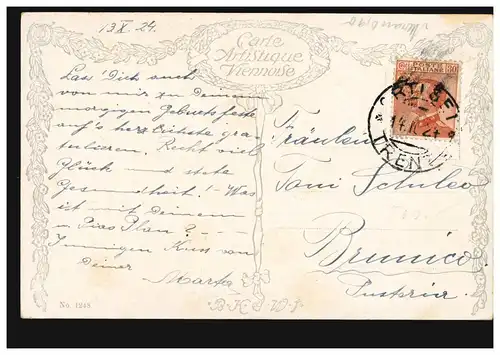 13 X 24.
Carte
Artistique
Viennoise
Lass' Dich auch
von mir zu deinem
morgigen Geburtsfeste
auf's herzlichste gra-
tulieren. Recht viel
Glück und stete
Gesundheit! – Was
ist mit deinem
u Pias Plan? –
Innigen Kuss von
deiner
Marta
No. 1248
B.K.W.I
POSTE
ITALIANE
ORTISEI
14.X.24
TREN
Fräulein
Toni Schuler
Brunico
Pusteria